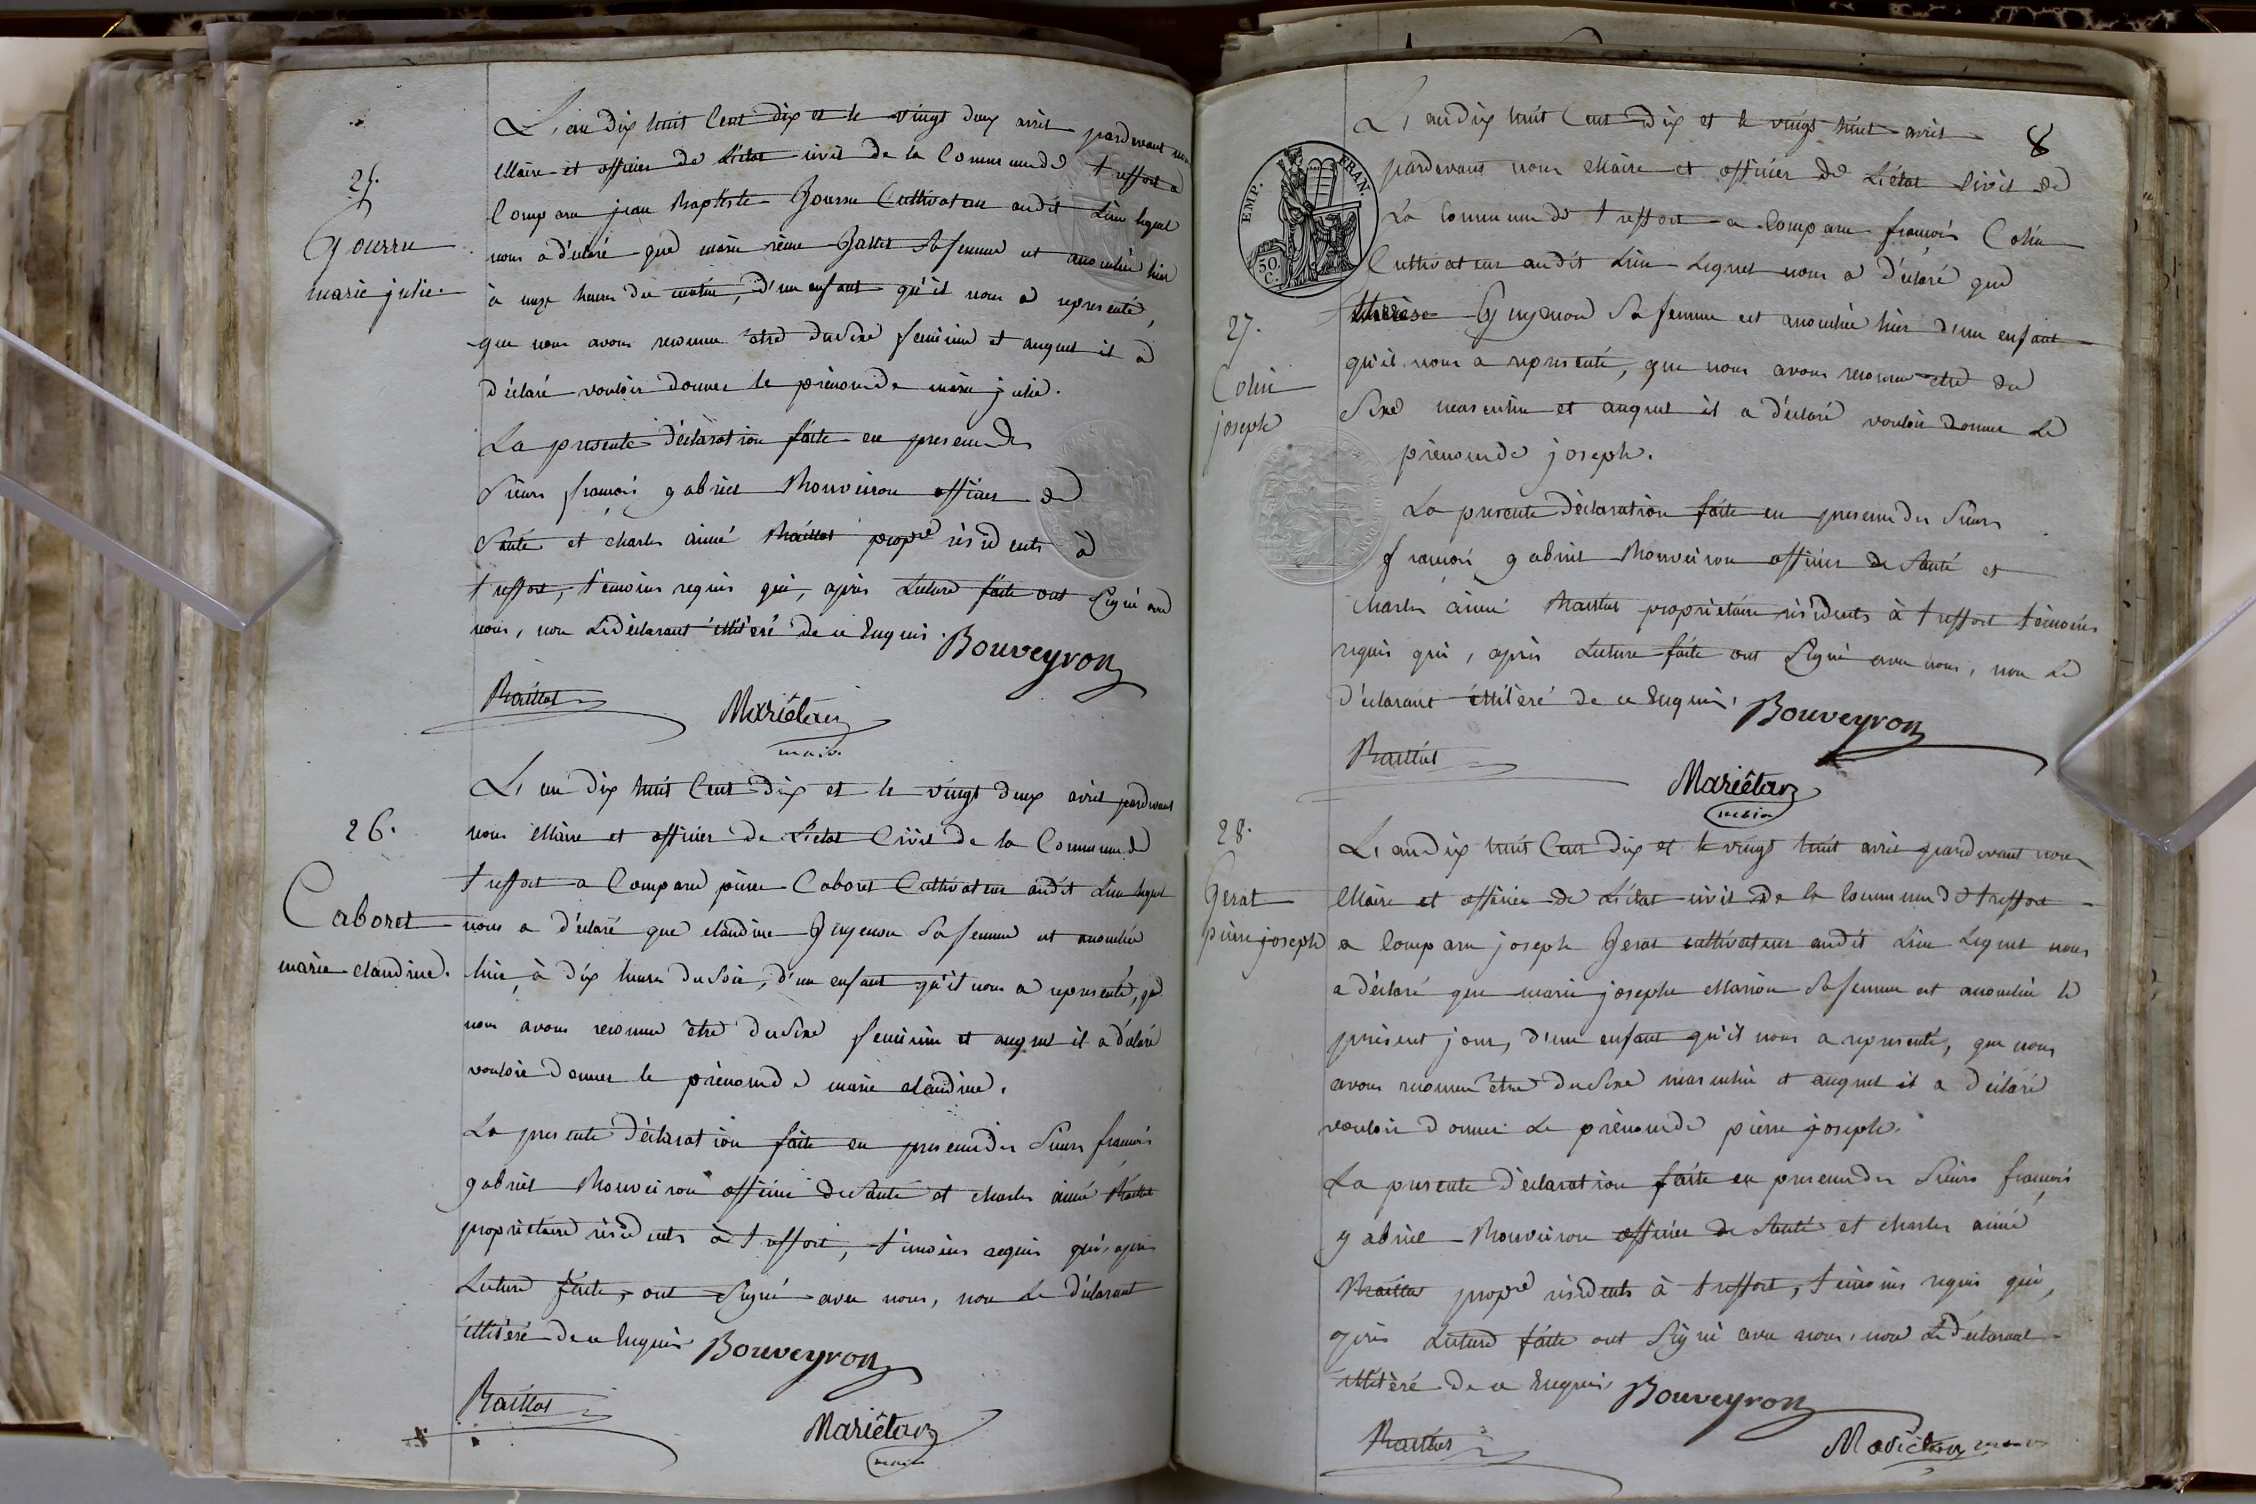 25.
Gourru
marie julie.
L'an dix huit Cent dix et le vingt deux avril pardevant nous
Maire et officier de L'état civil de la Commune de treffort a
Comparu jean Baptiste Gourru Cultivateur audit Lieu lequel
nous a déclaré que marie reine sa femme est accouchée hier
à onze heures du matin, d'un enfant qu'il nous a représenté,
que nous avons reconnu être du Sexe feminin et auquel il a
déclaré vouloir donner le prénom de marie julie.
La presente déclaration faite en presence des
Sieurs françois gabriel Bouveiron officier de
Santé et charles aimé Raillat propre résidents à
treffort, témoins requis qui, après Lecture faite ont Signé avec
nous, non Le déclarant illitéré de ce Enquis.
Bouveyron
Raillat
Mariétan
maire
26.
Caboret
marie claudine.
L'an dix huit Cent dix et le vingt deux avril pardevant
nous Maire et officier de L'état Civil de la Commune de
treffort a Comparu pierre Caboret Cultivateur audit Lieu lequel
nous a déclaré que claudine Guyenon Sa femme est accouchée
hier, à dix heures du Soir, d'un enfant qu'il nous a représenté, que
nous avons reconnu être du Sexe feminin et auquel il a déclaré
vouloir donner le prénom de marie claudine.
La presente déclaration faite en presence des Sieurs françois
gabriel Bouveiron officier de Santé et charles aimé Raillat
propriétaire résidents à treffort, témoins requis qui, après
Lecture faite, ont Signé avec nous, non Le déclarant
illitéré de ce Enquis
Bouveyron
Raillat
Mariétan
maire
8
EMP. FRAN.
50 C.
27.
Colin
joseph
L'an dix huit Cent dix et le vingt huit avril
pardevant nous Maire et officier de L'état Civil de
La Commune de treffort a Comparu françois Colin
Cultivateur audit Lieu Lequel nous a déclaré que
therèse Guyenon Sa femme est accouchée hier d'un enfant
qu'il nous a représenté, que nous avons reconnu être du
Sexe masculin et auquel il a déclaré vouloir donner Le
prénom de joseph.
La presente déclaration faite en presence des Sieurs
françois gabriel Bouveiron officier de Santé et
charles aimé Raillat propriétaire résidents à treffort témoins
requis qui, après Lecture faite ont Signé avec nous, non Le
déclarant illitéré de ce Enquis,
Bouveyron
Raillat
Mariétan
maire
28.
Gerat
pierre joseph
L'an dix huit Cent dix et le vingt huit avril pardevant nous
Maire et officier de L'état civil de la Commune de treffort
a Comparu joseph Gerat cultivateur audit Lieu Lequel nous
a déclaré que marie josephe Marion Sa femme est accouchée le
présent jour, d'un enfant qu'il nous a représenté, que nous
avons reconnu être du Sexe masculin et auquel il a déclaré
vouloir donner Le prénom de pierre joseph.
La presente déclaration faite en presence des Sieurs françois
gabriel Bouveiron officier de Santé et charles aimé
Raillat propre résidents à treffort, témoins requis qui,
après Lecture faite ont Signé avec nous, non Le déclarant
illitéré de ce Enquis,
Bouveyron
Raillat
Mariétan maire